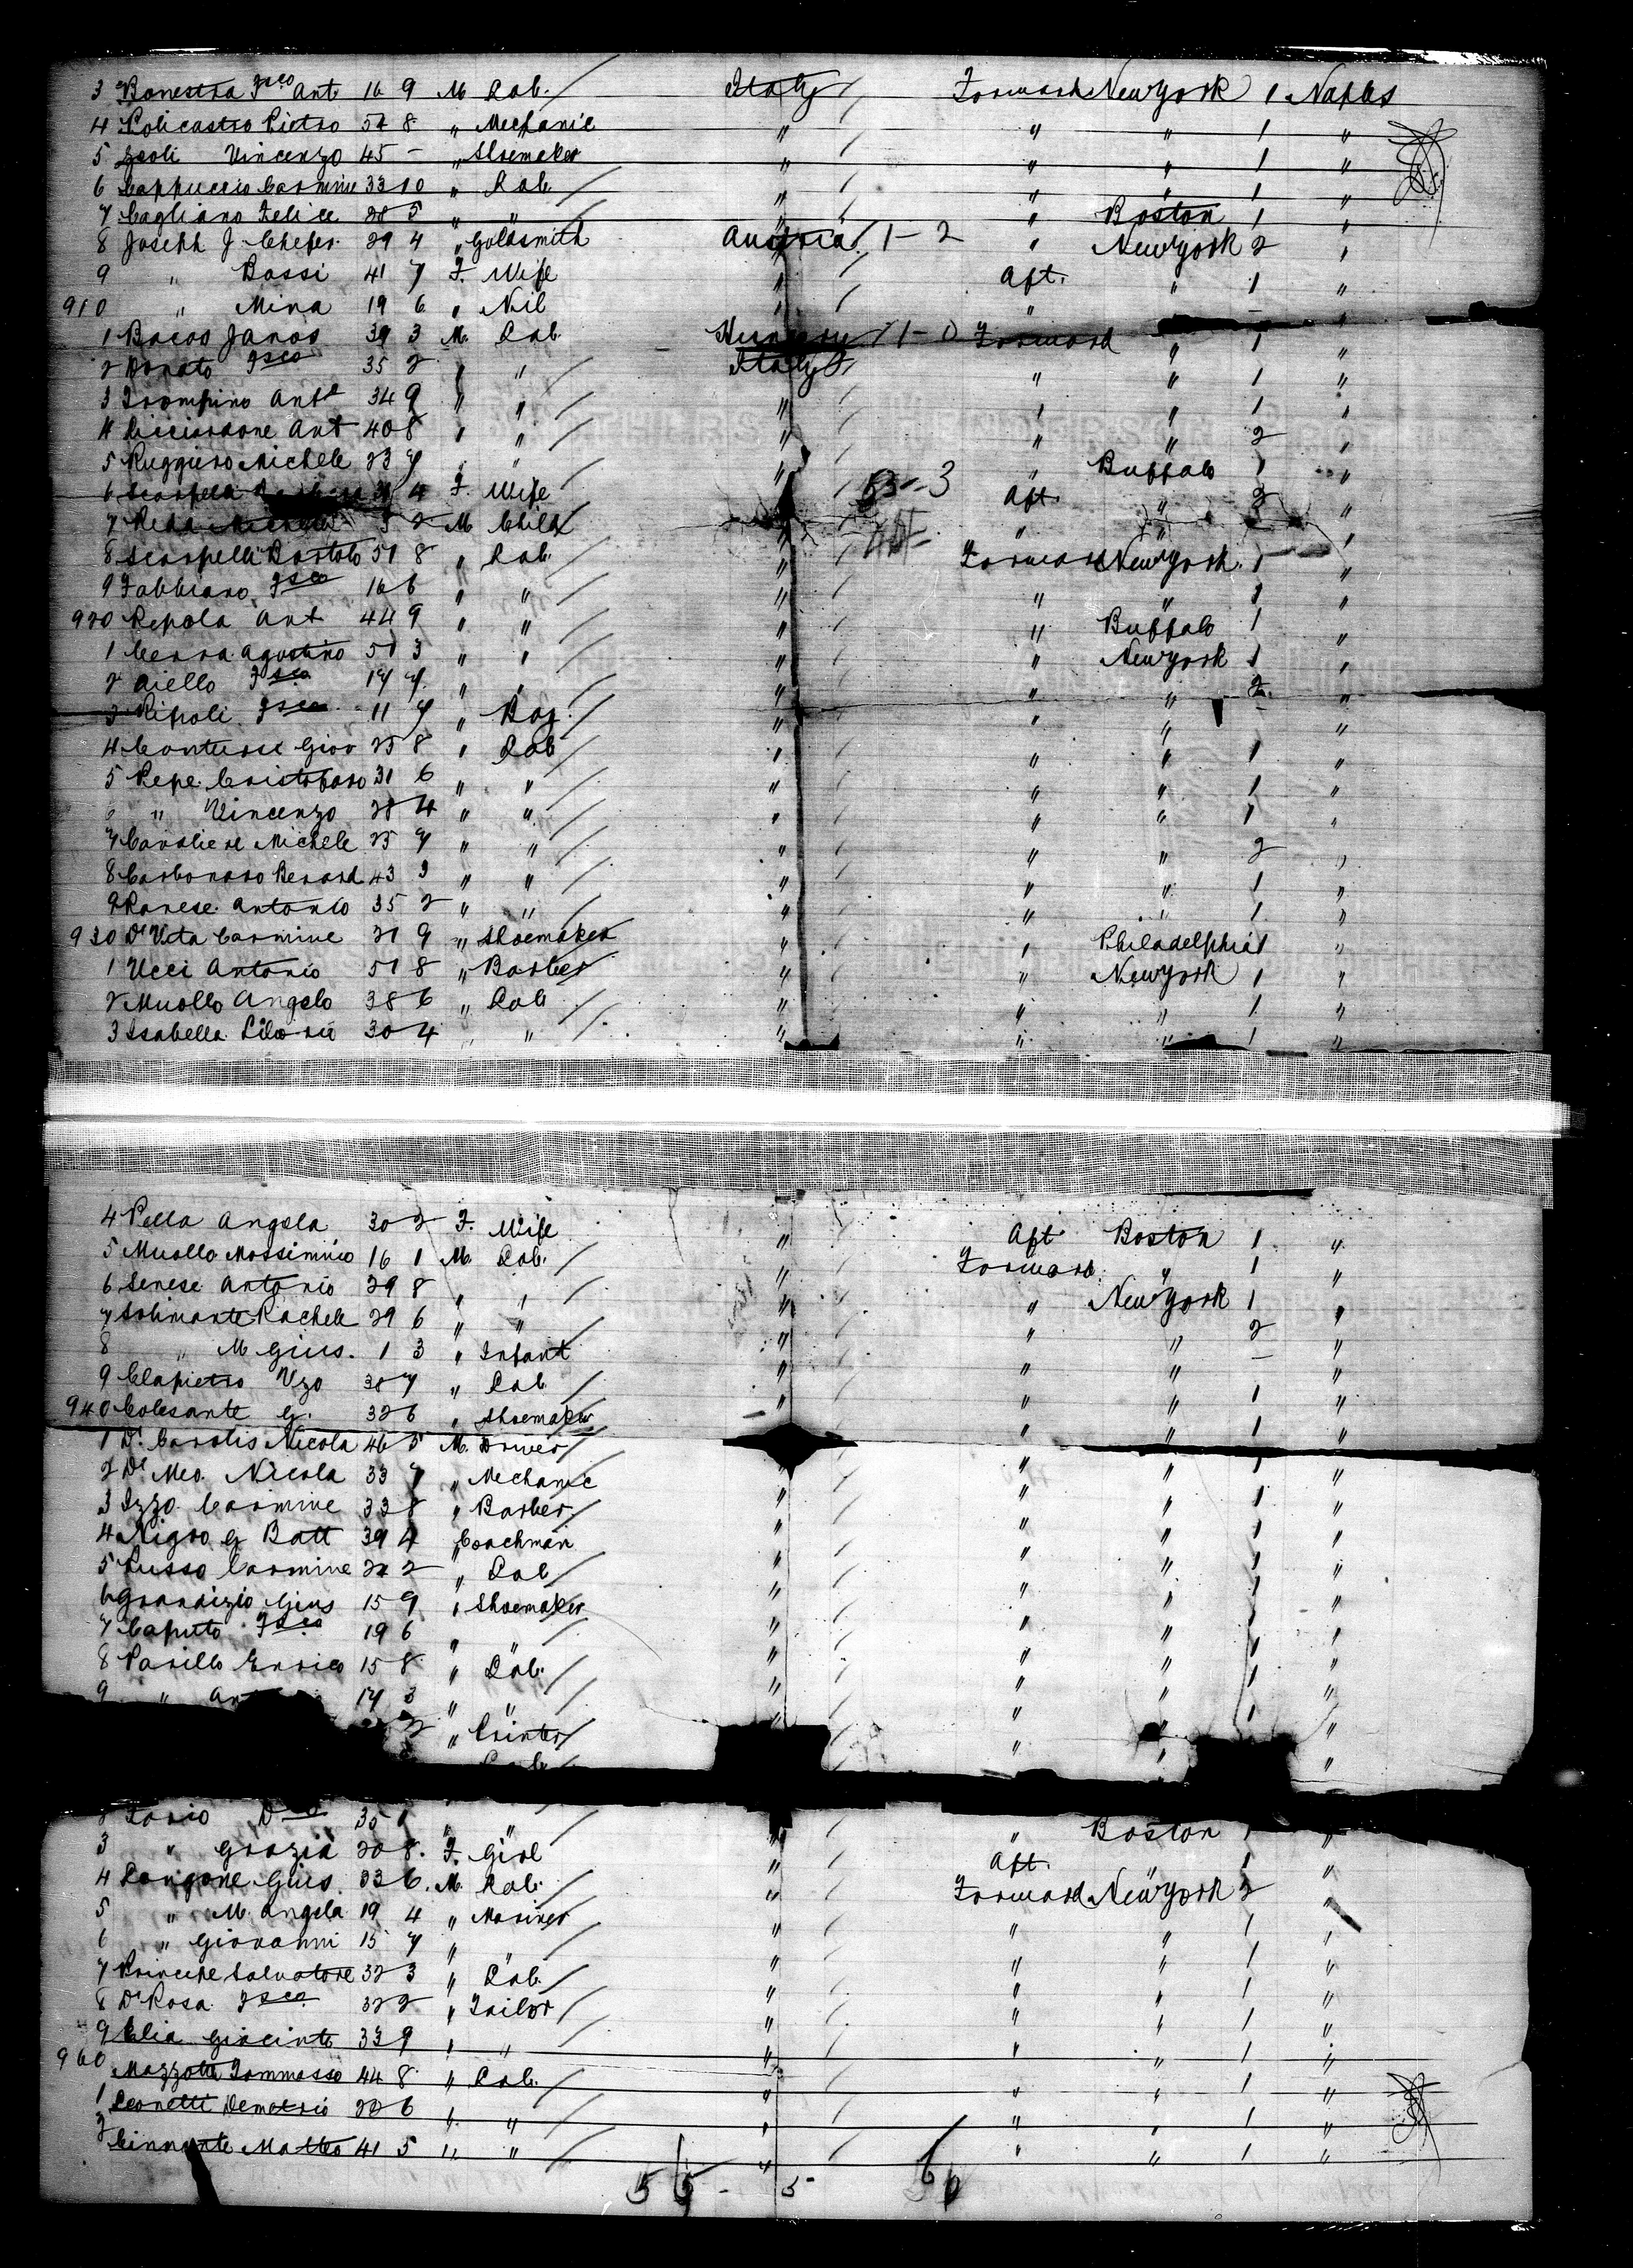 3 Banestra Fsco Ant 16 9 M Lab. / Italy / Forward New York 1 Naples
4 Policastro Pietro 54 8 " Mechanic " / " " 1 "
5 Vincenzo 45 - " Shoemaker " / " " 1 "
6 Cappuccio Carmine 33 10 " Lab. / " / " " 1 "
7 Cagliano Felice 28 5 " " " / " Boston 1 "
8 Joseph J. 29 4 " Goldsmith Austria / 1-2 " New York 2 "
9 " Bassi 41 7 F. Wife " / Aft. " 1 "
910 " Mina 19 6 " Nil " / " " - "
1 Bacos Janos 39 3 M. Lab. Hungary / 1-0 Forward " 1 "
2 Donato Fsco 35 2 " " / Italy / " " 1 "
3 Trompino Anto 34 9 " " / " / " " 1 "
4 Ricciardone Ant 40 8 " " / " / " " 2 "
5 Ruggiero Michele 23 7 " " / " / " Buffalo 1 "
6 Scarpella 4 F. Wife " / 3 Aft " 2 "
7 5 2 M Child " / " " "
8 Scarpelli Bartolo 51 8 " Lab. / " / Forward New York 1 "
9 Fabbiano Fsco 16 6 " " / " / " " 1 "
920 Repola Ant 44 9 " " / " / " Buffalo 1 "
1 Cerra Agostino 51 3 " " / " / " New York 1 "
2 Aiello Fsco 17 7 " " / " / " " 2 "
3 Ripoli Fsco 11 7 " Boy / " / " " - "
4 Contursi Giov 25 8 " Lab / " / " " 1 "
5 Pepe Cristofaro 31 6 " " / " / " " 1 "
6 " Vincenzo 28 4 " " / " / " " 1 "
7 Cavaliere Michele 25 7 " " / " / " " 2 "
8 Carbonaro Benard 43 3 " " / " / " " 1 "
9 Ranese Antonio 35 2 " " / " / " " 1 "
930 De Vita Carmine 21 9 " Shoemaker " / " Philadelphia 1 "
1 Ucci Antonio 51 8 " Barber " / " New York 1 "
2 Muollo Angelo 38 6 " Lab / " / " " 1 "
3 Isabella 30 4 " " / " / " " 1 "
4 Pella Angela 30 2 F. Wife " / Aft Boston 1 "
5 Muollo Massimino 16 1 M. Lab. / " / Forward " 1 "
6 Senese Antonio 29 8 " " / " / " New York 1 "
7 Solimante Rachele 29 6 " " " / " " 2 "
8 " M Gius. 1 3 " Infant " / " " - "
9 Clapietro Vzo 38 7 " Lab / " / " " 1 "
940 Colesante G. 32 6 " Shoemaker " / " " 1 "
1 De Carolis Nicola 46 5 M. Driver / " / " " 1 "
2 De Meo Nicola 33 7 " Mechanic " / " " 1 "
3 Izzo Carmine 33 8 " Barber / " / " " 1 "
4 Nigro G Batt 39 4 " Coachman " / " " 1 "
5 Russo Carmine 22 2 " Lab / " / " " 1 "
6 Grandizio Gius 15 9 " Shoemaker " / " " 1 "
7 Caputo Fsco 19 6 " " / " / " " 1 "
8 Parillo Enrico 15 8 " Lab. / " / " " 1 "
9 " 17 3 " " / " / " " 1 "
2 " Printer / " " "
Fario 35 1 " " / " / " Boston 1 "
3 " Grazia 20 8. F. Girl " / Aft. " 1 "
4 Langone Gius 33 6. M. Lab. / " / Forward New York 2 "
5 " M. Angela 19 4 " Mariner " / " " 1 "
6 " Giovanni 15 7 " " / " / " " 1 "
7 Principe Salvatore 32 3 " Lab. / " / " " 1 "
8 De Rosa Fsco 32 2 " Tailor / " / " " 1 "
9 Elia Giacinto 33 9 " " / " / " " 1 "
960 Mazzotta Tommasso 44 8 " Lab. / " / " " 1 "
1 Leonetti Demetrio 22 6 " " / " / " " 1 "
2 Matteo 41 5 " " / " / " " 1 "
55 - 5